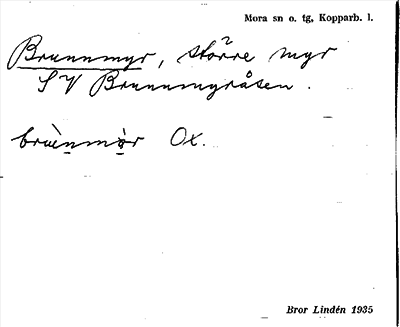 Mora sn o. tg, Kopparb. l.
Brunnmyr, större myr
SV Brunnmyråsen.
Ox.
Bror Lindén 1935